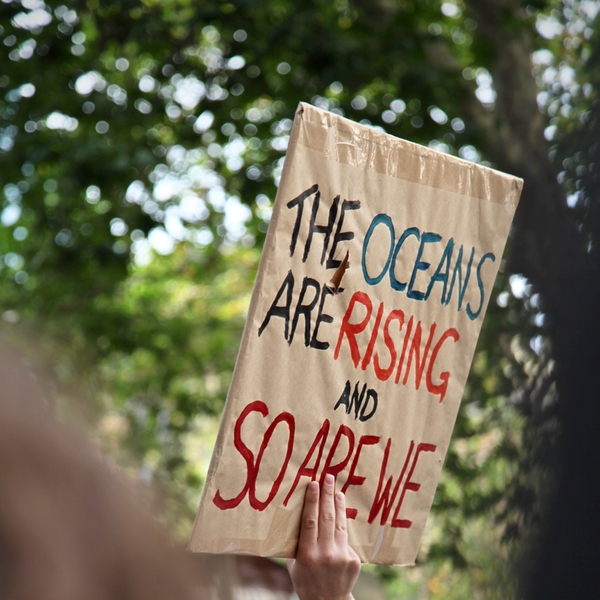 THE OCEANS
ARE RISING
AND
SO ARE WE